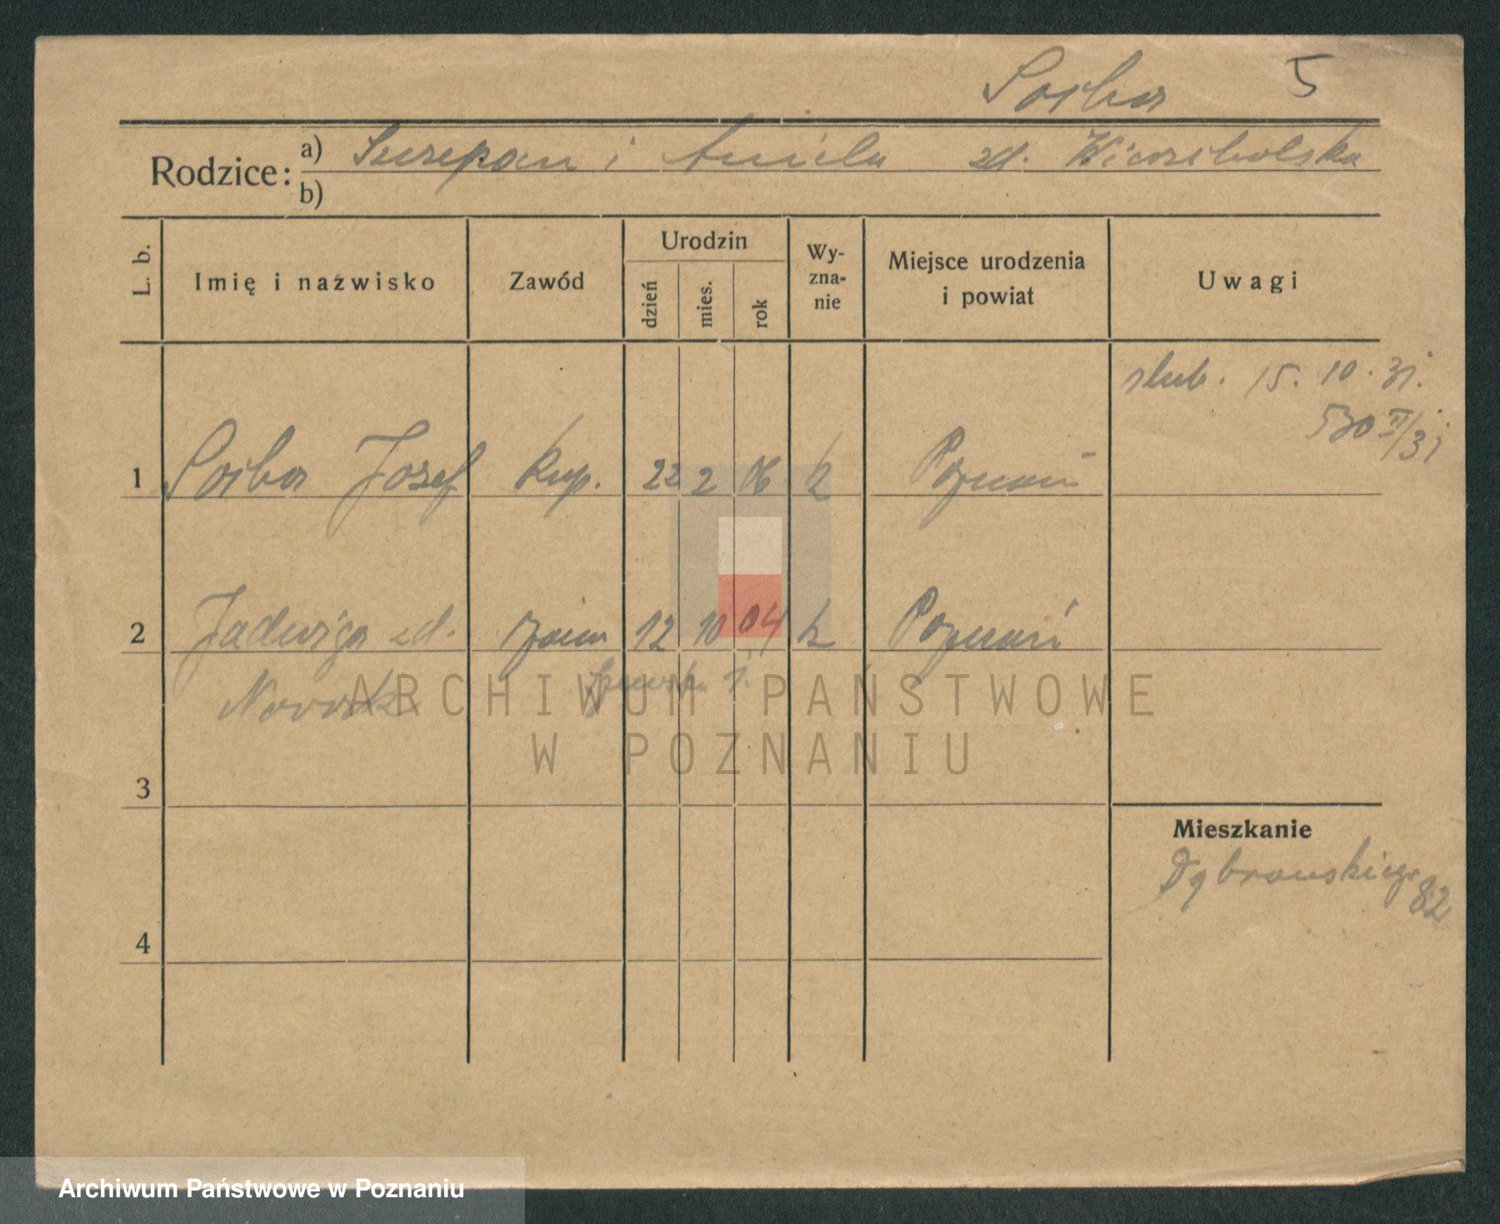 5
Rodzice: a) Szczepan i Aniela zd.
b)
L. b.
Imię i nazwisko
Zawód
Urodzin
dzień
mies.
rok
Wy-
zna-
nie
Miejsce urodzenia
i powiat
Uwagi
ślub. 15. 10. 31.
530 II/31
1 Józef kup. 22 2 06 k Poznań
2 Jadwiga zd. 12 10 04 k Poznań
ARCHIWUM PAŃSTWOWE
W POZNANIU
3
Mieszkanie
Dąbrowskiego
82
4
Archiwum Państwowe w Poznaniu